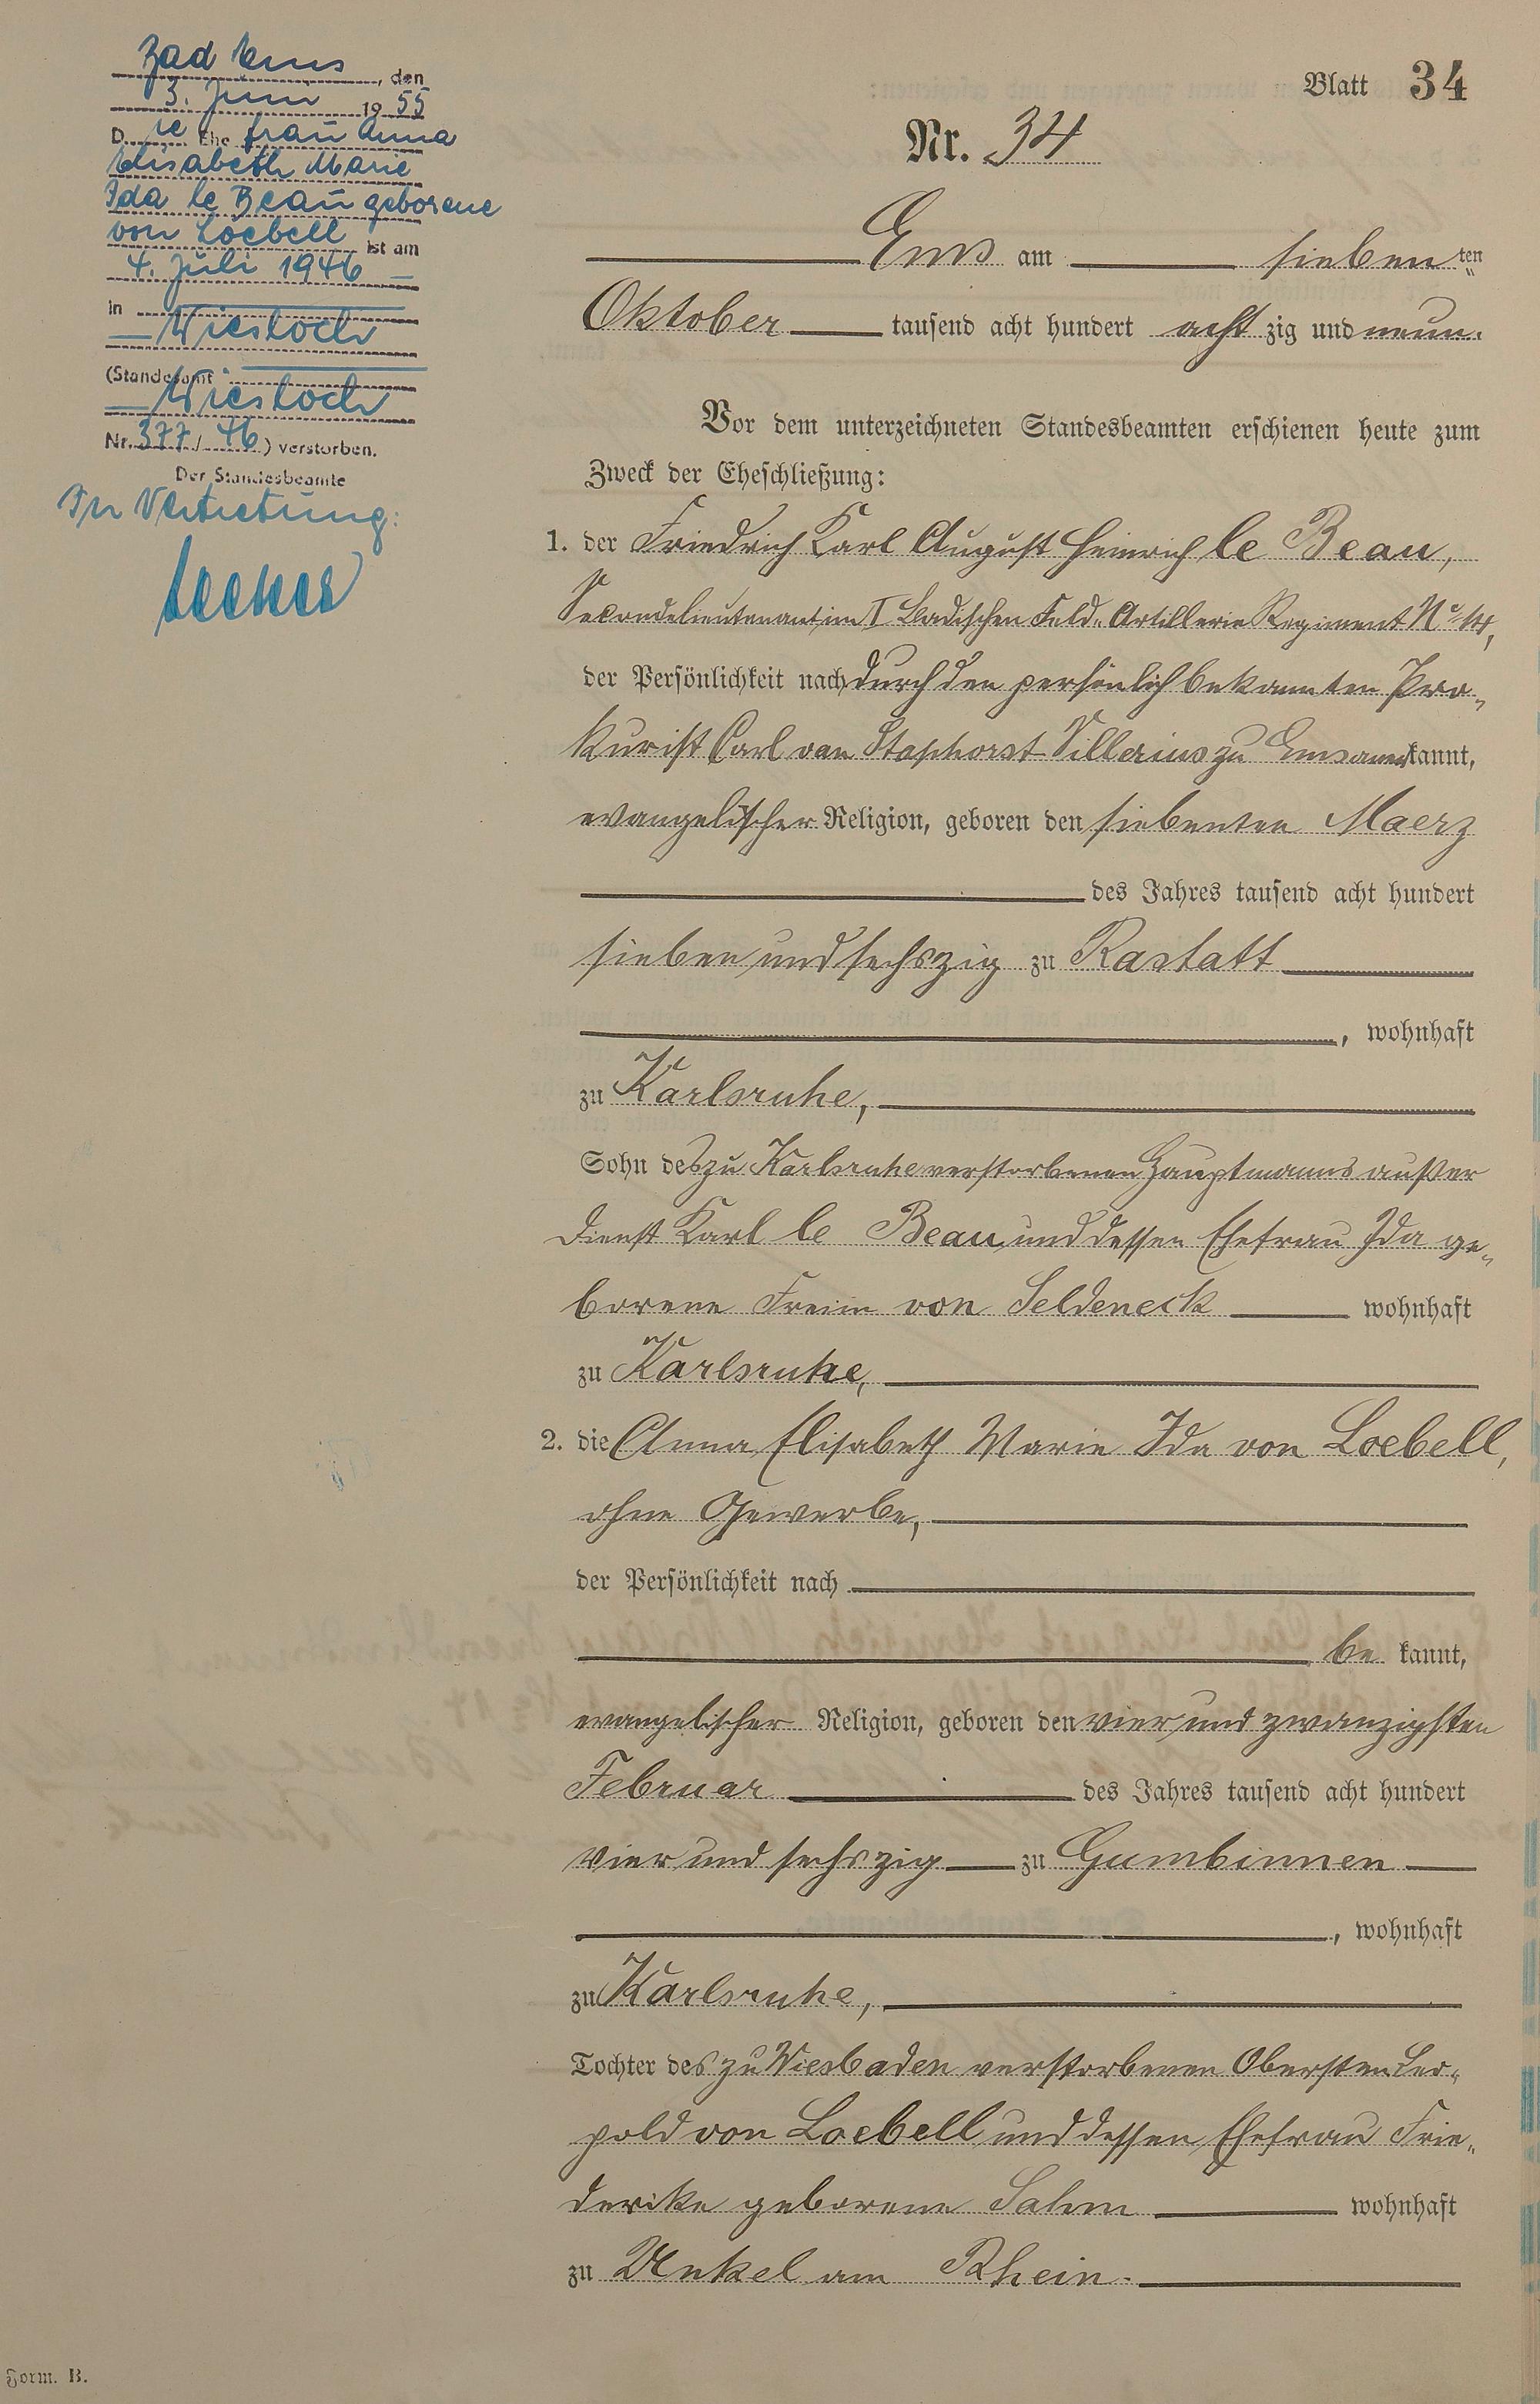 Bad Ems, den
3. Juni 1955
Die Ehefrau Anna
Elisabeth Marie
Ida le Beau geborene
von Loebell ist am
4. Juli 1946
in
Wiesloch
(Standesamt
Wiesloch
Nr. 377/46) verstorben.
Der Standesbeamte
In Vertretung:
Blatt 34
Nr. 34
Ems am siebenten
Oktober tausend acht hundert achtzig und neun.
Vor dem unterzeichneten Standesbeamten erschienen heute zum
Zweck der Eheschließung:
1. der Friedrich Karl August Heinrich le Beau,
Secondelieutenant im I Badischen Feld-Artillerie Regiment No 14,
der Persönlichkeit nach durch den persönlich bekannten Pro-
kurist Carl van Staphorst Villerius zu Ems anerkannt,
evangelischer Religion, geboren den siebenten Maerz
des Jahres tausend acht hundert
sieben und sechszig zu Rastatt
, wohnhaft
zu Karlsruhe,
Sohn des zu Karlsruhe verstorbenen Hauptmanns außer
Dienst Karl le Beau und dessen Ehefrau Ida ge-
borene Freiin von Seldeneck wohnhaft
zu Karlsruhe,
2. die Anna Elisabeth Marie Ida von Loebell,
ohne Gewerbe,
der Persönlichkeit nach
be kannt,
evangelischer Religion, geboren den vier und zwanzigsten
Februar des Jahres tausend acht hundert
vier und sechszig zu Gumbinnen
, wohnhaft
zu Karlsruhe,
Tochter des zu Wiesbaden verstorbenen Obersten Leo-
pold von Loebell und dessen Ehefrau Frie-
derike geborene Sahm wohnhaft
zu Unkel am Rhein.
Form. B.